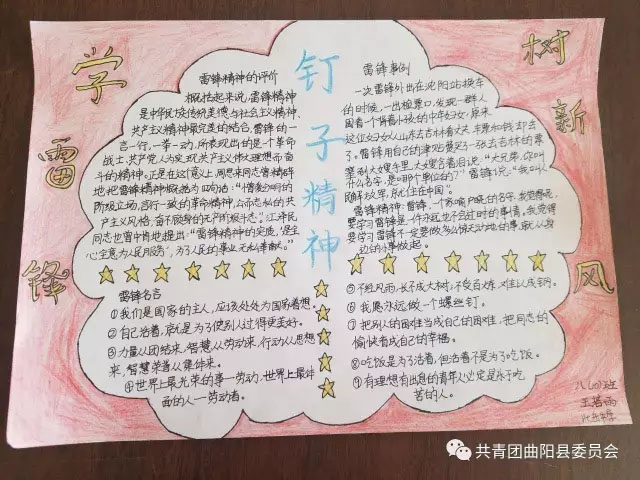 学雷锋
树新风
钉子精神
雷锋精神的评价
概括起来说,雷锋精神
是中华民族传统美德与社会主义精神、
共产主义精神最完美的结合,雷锋的一
言一行,一举一动,所表现出的是一个革命
战士、共产党人为实现共产主义伟大理想而奋
斗的精神。正是在这意义上,周恩来同志曾精辟
地把雷锋精神概括为四句话:“憎爱分明的
阶级立场,言行一致的革命精神,公而忘私的共
产主义风格,奋不顾身的无产阶级斗志。”江泽民
同志也曾中肯地提出:“雷锋精神的实质,是全
心全意为人民服务,为了人民的事业无私奉献。”
雷锋事例
一次雷锋外出在沈阳站换车
的时候,一出检票口,发现一群人
围着一个背着小孩的中年妇女,原来
这位妇女从山东去吉林看丈夫,车票和钱却丢
了。雷锋用自己的津贴费买了一张去吉林的票
塞到大嫂手里,大嫂含着泪说:“大兄弟,你叫
什么名字,是哪个单位的?”雷锋说:“我叫
解放军,就住在中国。”
雷锋精神:雷锋,一个家喻户晓的名字,我觉得
要学习雷锋是一件永远也不会过时的事情,我觉得
要学习雷锋不一定要做多么惊天动地的事,就从身
边的小事做起。
雷锋名言
①我们是国家的主人,应该处处为国家着想。
②自己活着,就是为了使别人过得更美好。
③力量从团结来,智慧从劳动来,行动从思想
来,智慧荣誉从集体来。
④世界上最光荣的事—劳动,世界上最体
面的人—劳动者。
⑤不经风雨,长不成大树;不受百炼,难以成钢。
⑥我愿永远做一个螺丝钉。
⑦把别人的困难当成自己的困难,把同志的
愉快看成自己的幸福。
⑧吃饭是为了活着,但活着不是为了吃饭。
⑨有理想有出息的青年人必定是乐于吃
苦的人。
王若雨
共青团曲阳县委员会